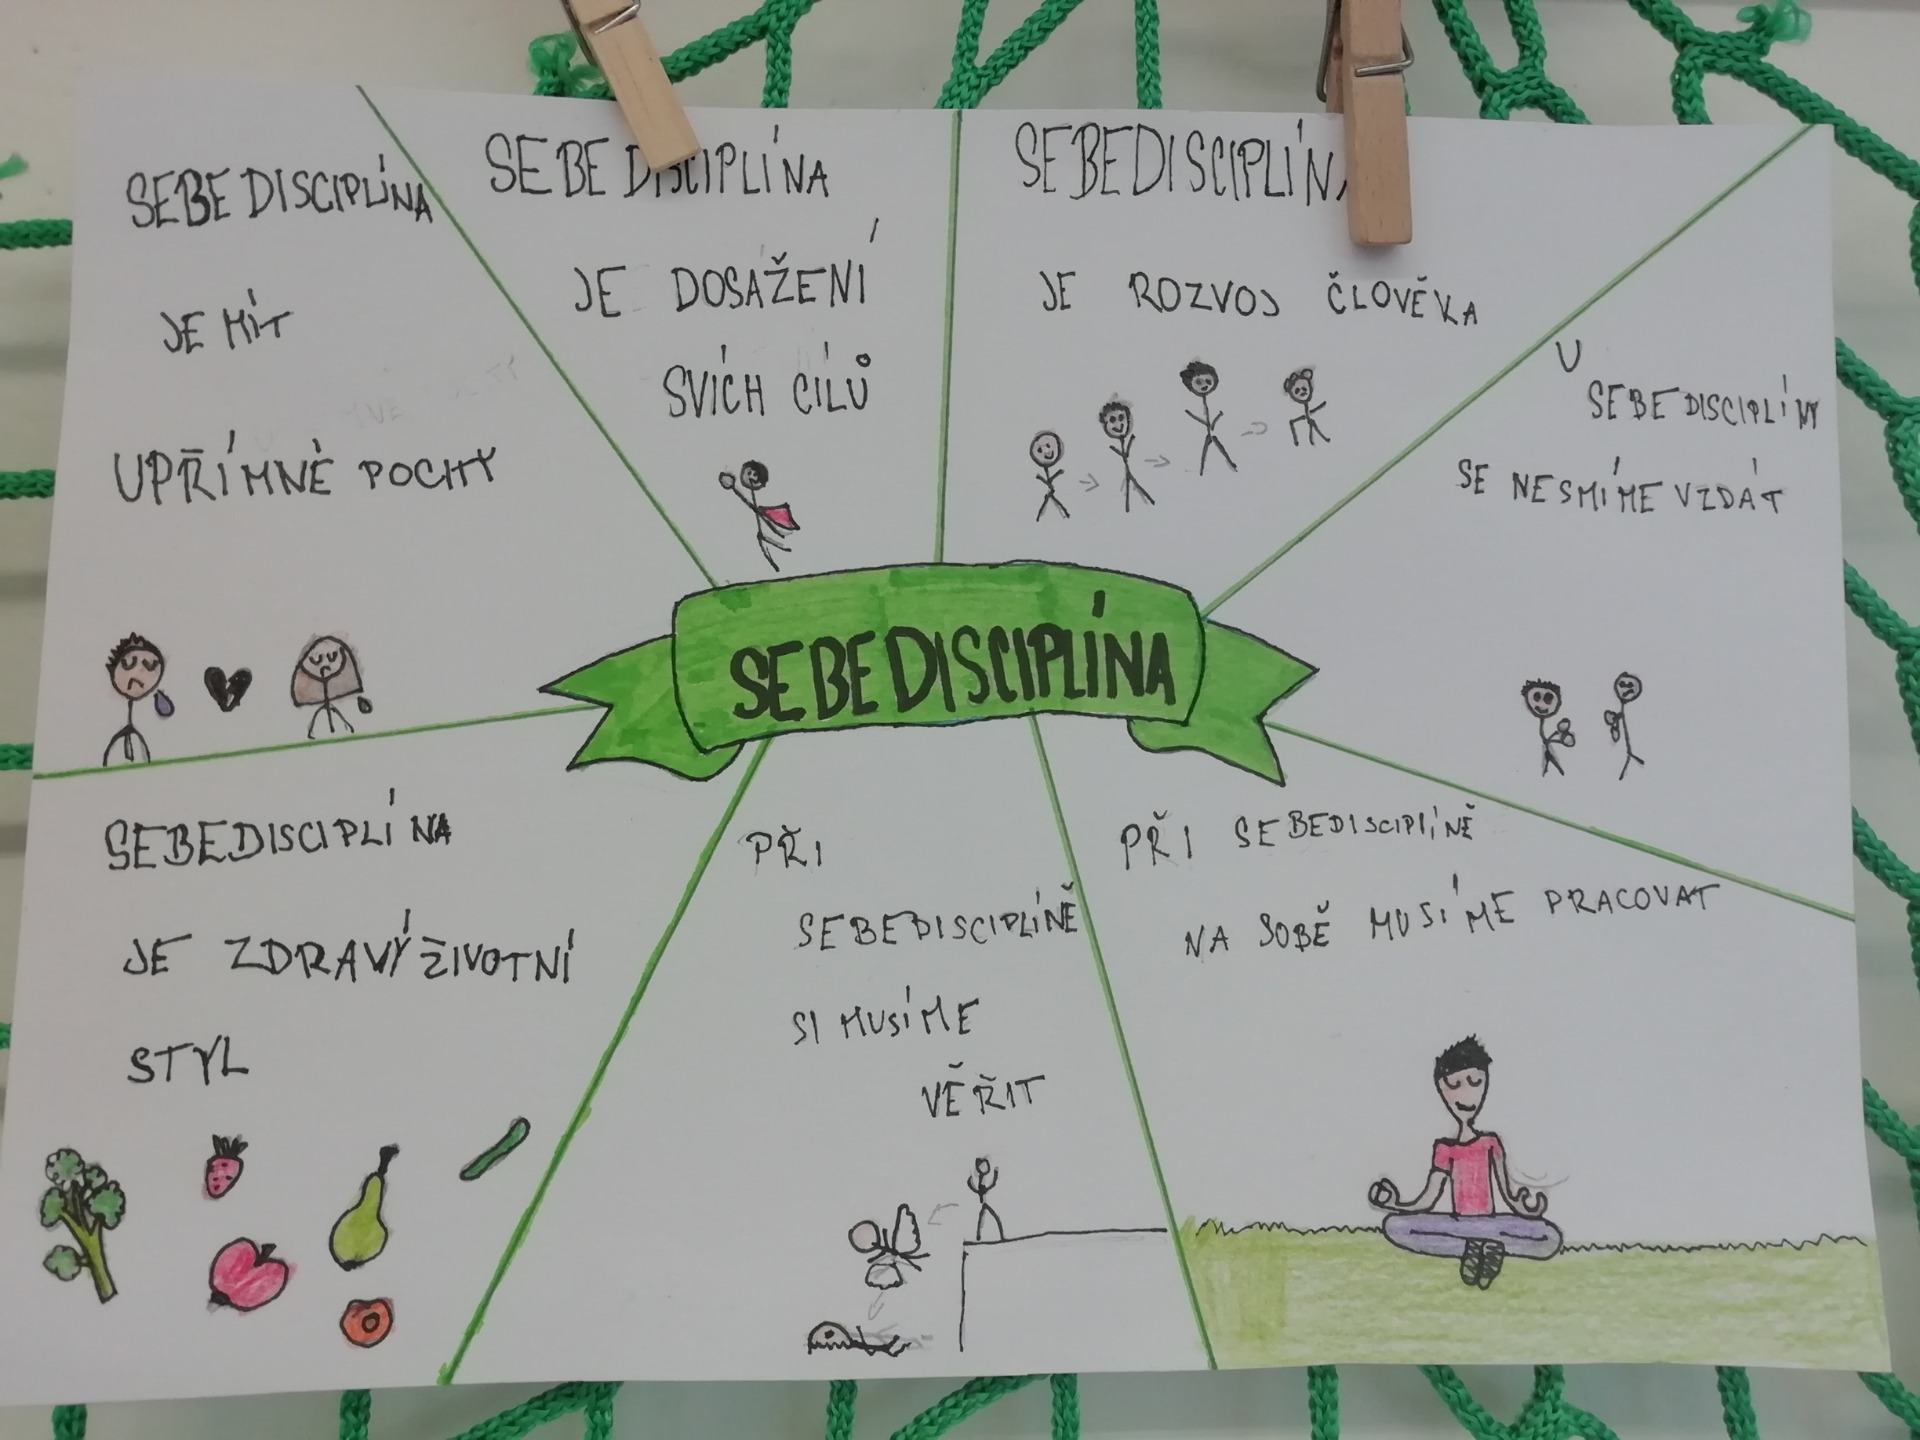 SEBEDISCIPLÍNA
JE MÍT
UPŘÍMNÉ POCITY
SEBEDISCIPLÍNA
JE DOSAŽENÍ
SVÍCH CÍLŮ
SEBEDISCIPLÍNA
JE ROZVOJ ČLOVĚKA
U
SEBEDISCIPLÍNY
SE NESMÍME VZDÁT
SEBEDISCIPLÍNA
SEBEDISCIPLÍNA
JE ZDRAVÝ ŽIVOTNÍ
STYL
PŘI
SEBEDISCIPLÍNĚ
SI MUSÍME
VĚŘIT
PŘI SEBEDISCIPLÍNĚ
NA SOBĚ MUSÍME PRACOVAT